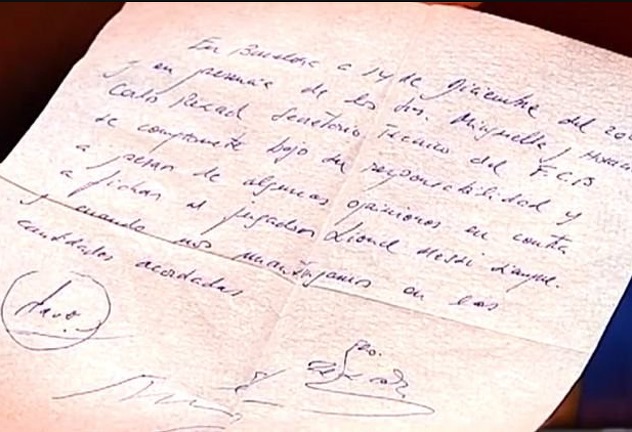 En Barcelona a 14 de Diciembre del 200
y en presencia de los Srs. Minguella y Horaci
Carlos Rexach Secretario Técnico del F.C.B
se compromete bajo su responsabilidad y
a pesar de algunas opiniones en contra
a fichar al jugador Lionel Messi siempre
y cuando nos mantengamos en las
cantidades acordadas